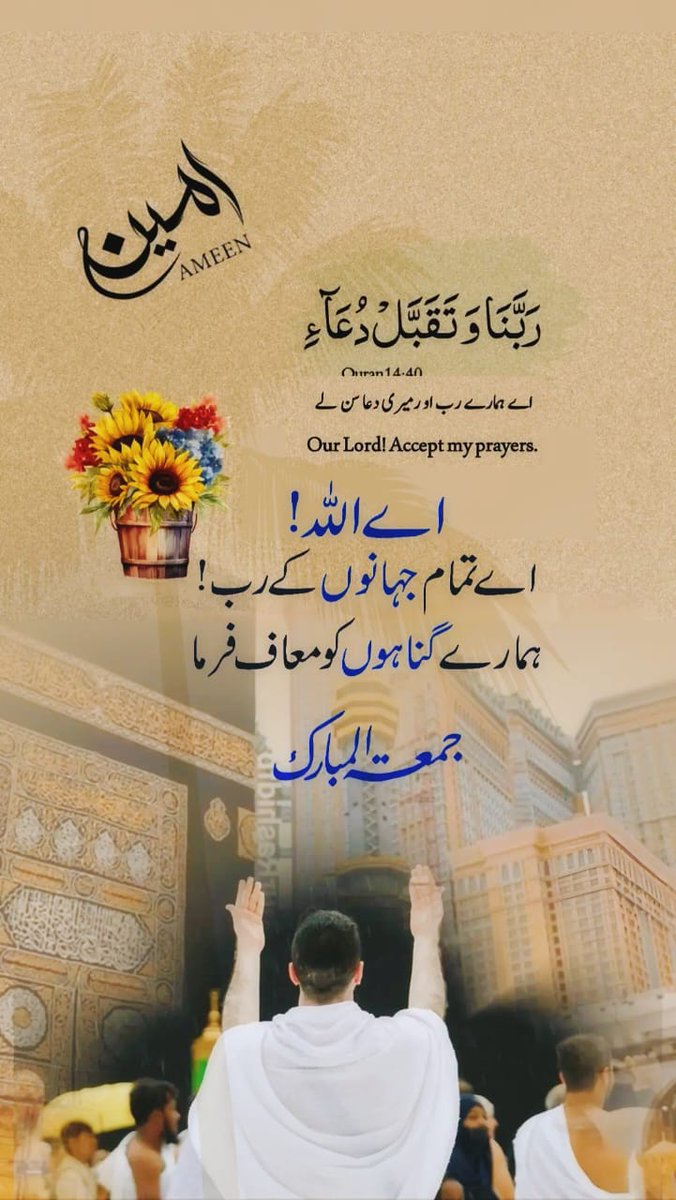 امین
AMEEN
رَبَّنَا وَتَقَبَّلْ دُعَآءِ
Quran 14:40
اے ہمارے رب اور میری دعا سن لے
Our Lord! Accept my prayers.
اے اللہ!
اے تمام جہانوں کے رب!
ہمارے گناہوں کو معاف فرما
جمعتہ المبارک